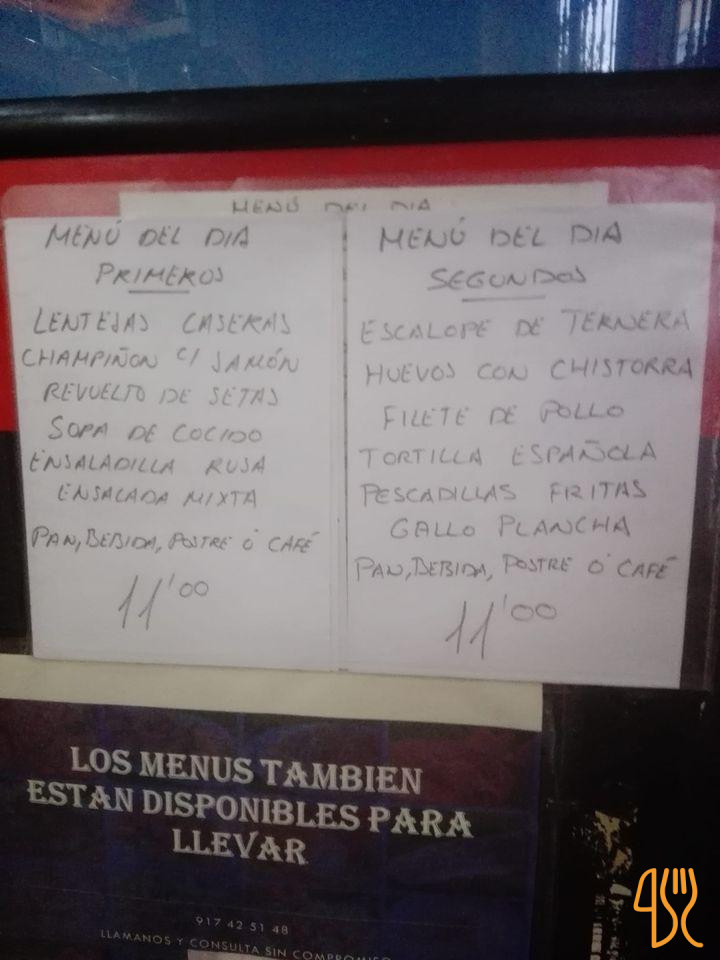 MENÚ DEL DIA
MENÚ DEL DIA
PRIMEROS
LENTEJAS CASERAS
CHAMPIÑON C/ JAMÓN
REVUELTO DE SETAS
SOPA DE COCIDO
ENSALADILLA RUSA
ENSALADA MIXTA
PAN, BEBIDA, POSTRE Ó CAFÉ
11'00
MENÚ DEL DIA
SEGUNDOS
ESCALOPE DE TERNERA
HUEVOS CON CHISTORRA
FILETE DE POLLO
TORTILLA ESPAÑOLA
PESCADILLAS FRITAS
GALLO PLANCHA
PAN, BEBIDA, POSTRE Ó CAFÉ
11'00
LOS MENUS TAMBIEN
ESTAN DISPONIBLES PARA
LLEVAR
917 42 51 48
LLAMANOS Y CONSULTA SIN COMPROMISO